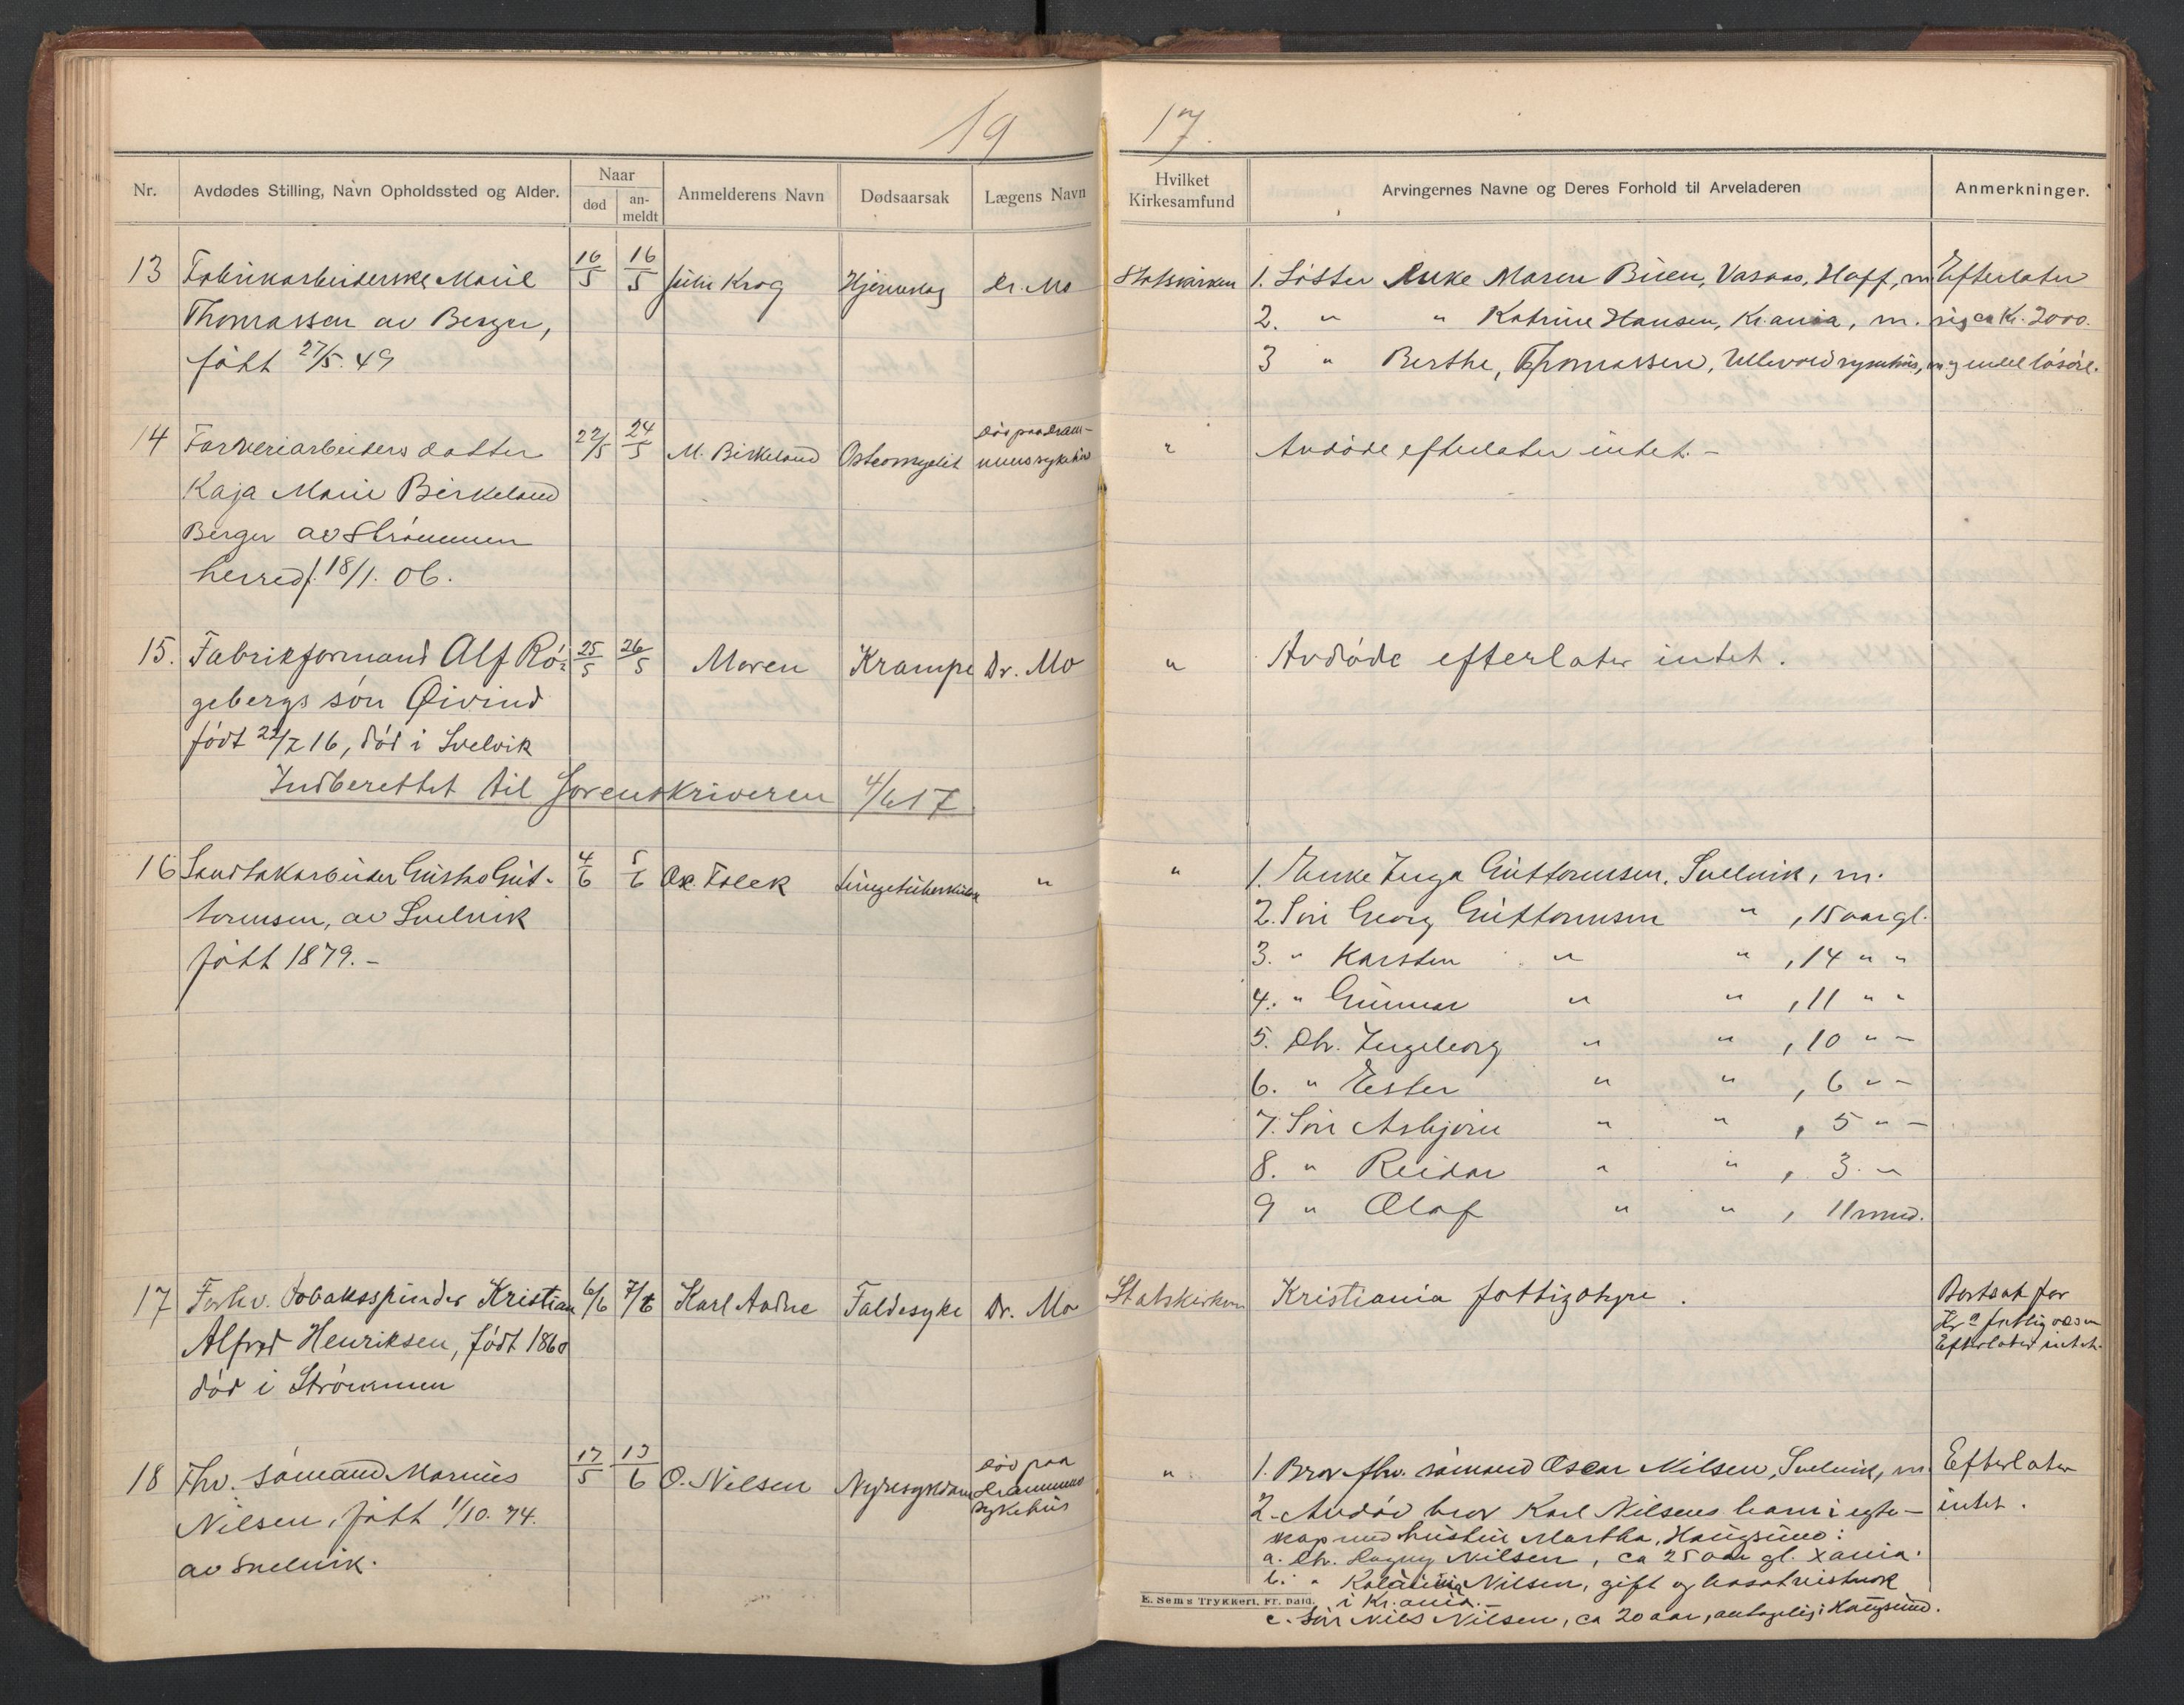 19 17.
Nr. Avdødes Stilling, Navn Opholdssted og Alder. Naar død an-meldt Anmelderens Navn Dødsaarsak Lægens Navn Hvilket Kirkesamfund Arvingernes Navne og Deres Forhold til Arveladeren Anmerkninger.
13 Fabrikarbeiderske Marie 16/5 16/5 Julie Krog Hjerneslag Dr. Mo Statskirken 1. Søster Enke Maren Buen, Vasaas, Hoff, m. Efterlater
Thomassen av Berger, 2. " " Katrine Hansen, Kr.ania, m. sig ca Kr. 2000.
født 27/5. 49 3 " Berthe, Thomassen, Ullevold sykehus, m. og endel løsøre.
14 Farveriarbeiders datter 22/5 24/5 M. Birkeland Osteomyelit død paa Dram-
mens sykehus " Avdøde efterlater intet. -
Kaja Marie Birkeland
Berger av Strømmen
herred f. 18/1. 06.
15. Fabrikformand Alf Rø- 25/5 26/5 Moren Krampe Dr. Mo " Avdøde efterlater intet.
gebergs søn Øivind
født 22/2 16, død i Svelvik
Indberettet til Sorenskriveren 4/6 17
16 Sandtakarbeider Gustav Gut- 4/6 5/6 Ox. Falck Lungetuberkulose " " 1. Enke Inga Guttormsen, Svelvik, m.
tormsen, av Svelvik 2. Søn Georg Guttormsen " , 15 aar gl.
født 1879. - 3. " Karsten " " , 14 " "
4. " Gunnar " " , 11 " "
5. Dtr. Ingeborg " " , 10 " -
6. " Ester " " , 6 " -
7. Søn Asbjørn " " , 5 " -
8. " Reidar " " , 3. "
9 " Olaf " " , 11 mnd.
17 Forhv. Tobaksspinder Kristian 6/6 7/6 Karl Aadne Faldesyke Dr. Mo Statskirken Kristiania fattigstyre. Bortsat for
Alfred Henriksen, født 1860 Kr.a fattigvæsen
død i Strømmen Efterlater intet.
18 Fhv. sømand Marius 17/5 13/6 O. Nilsen Nyresygdom død paa
Drammens
sykehus " 1. Bror fhv. sømand Oscar Nilsen, Svelvik, m. Efterlater
Nilsen, født 1/10. 74. 2. Avdød bror Karl Nilsens barn i egte- intet.
av Svelvik. skap med hustru Martha, Haugsund:
a. Dtr. Dagny Nilsen, ca 25 aar gl. Xania.
b. " Nilsen, gift og bosat
E. Sems Trykkeri, Fr.hald. i Kr.ania. -
c. Søn Nils Nilsen, ca 20 aar, antagelig i Haugsund.